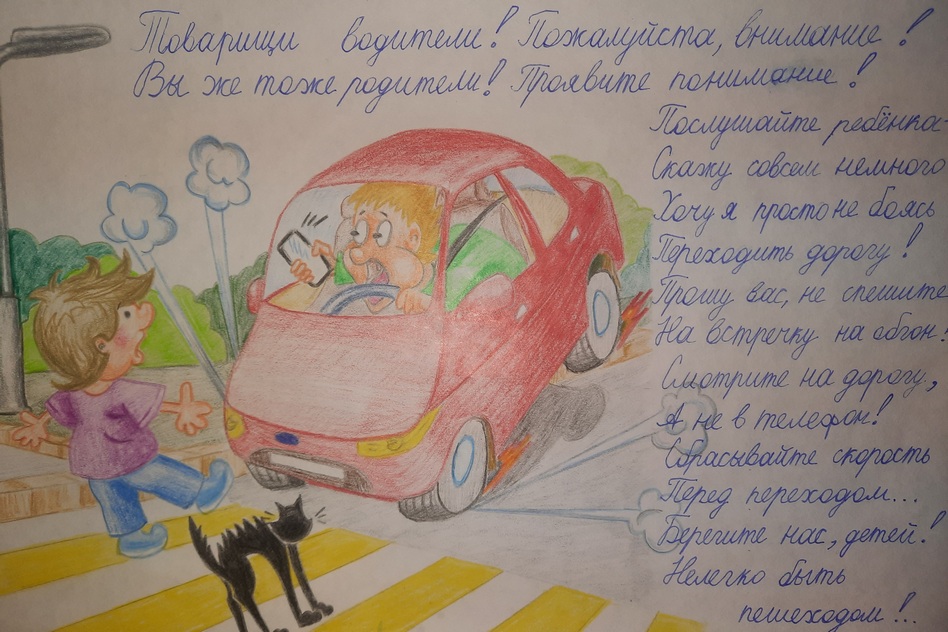 Товарищи водители! Пожалуйста, внимание!
Вы же тоже родители! Проявите понимание!
Послушайте ребёнка-
Скажу совсем немного
Хочу я просто не боясь
Переходить дорогу!
Прошу вас, не спешите
На встречку на обгон!
Смотрите на дорогу,
А не в телефон!
Сбрасывайте скорость
Перед переходом...
Берегите нас, детей!
Нелегко быть
пешеходом!..